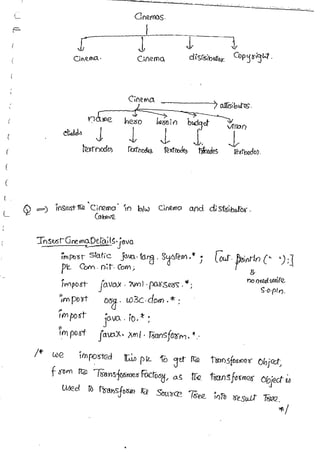 Cinemas.
Cinema. Cinema distributor Copyright.
Cinema → attributes.
name hero heroin budget
childs
Textnodes Textnodes Textnodes Textnodes.
Q ⇒ insert the 'Cinema' in b/w Cinema and distributor.
InsertCinemaDetails.java
import static java.lang.System.*; [out.println(" ");]
pk com.nit.com; &
no need write
import javax.xml.parsers.*; S.o.pln.
import org.w3c.dom.*;
import java.io.*;
import javax.xml.Transform.*.
/* we imported this pk to get the transformer Object,
from the TransformerFactory, as the Transformer Object is
used to Transform the Source Tree into result Tree.
*/